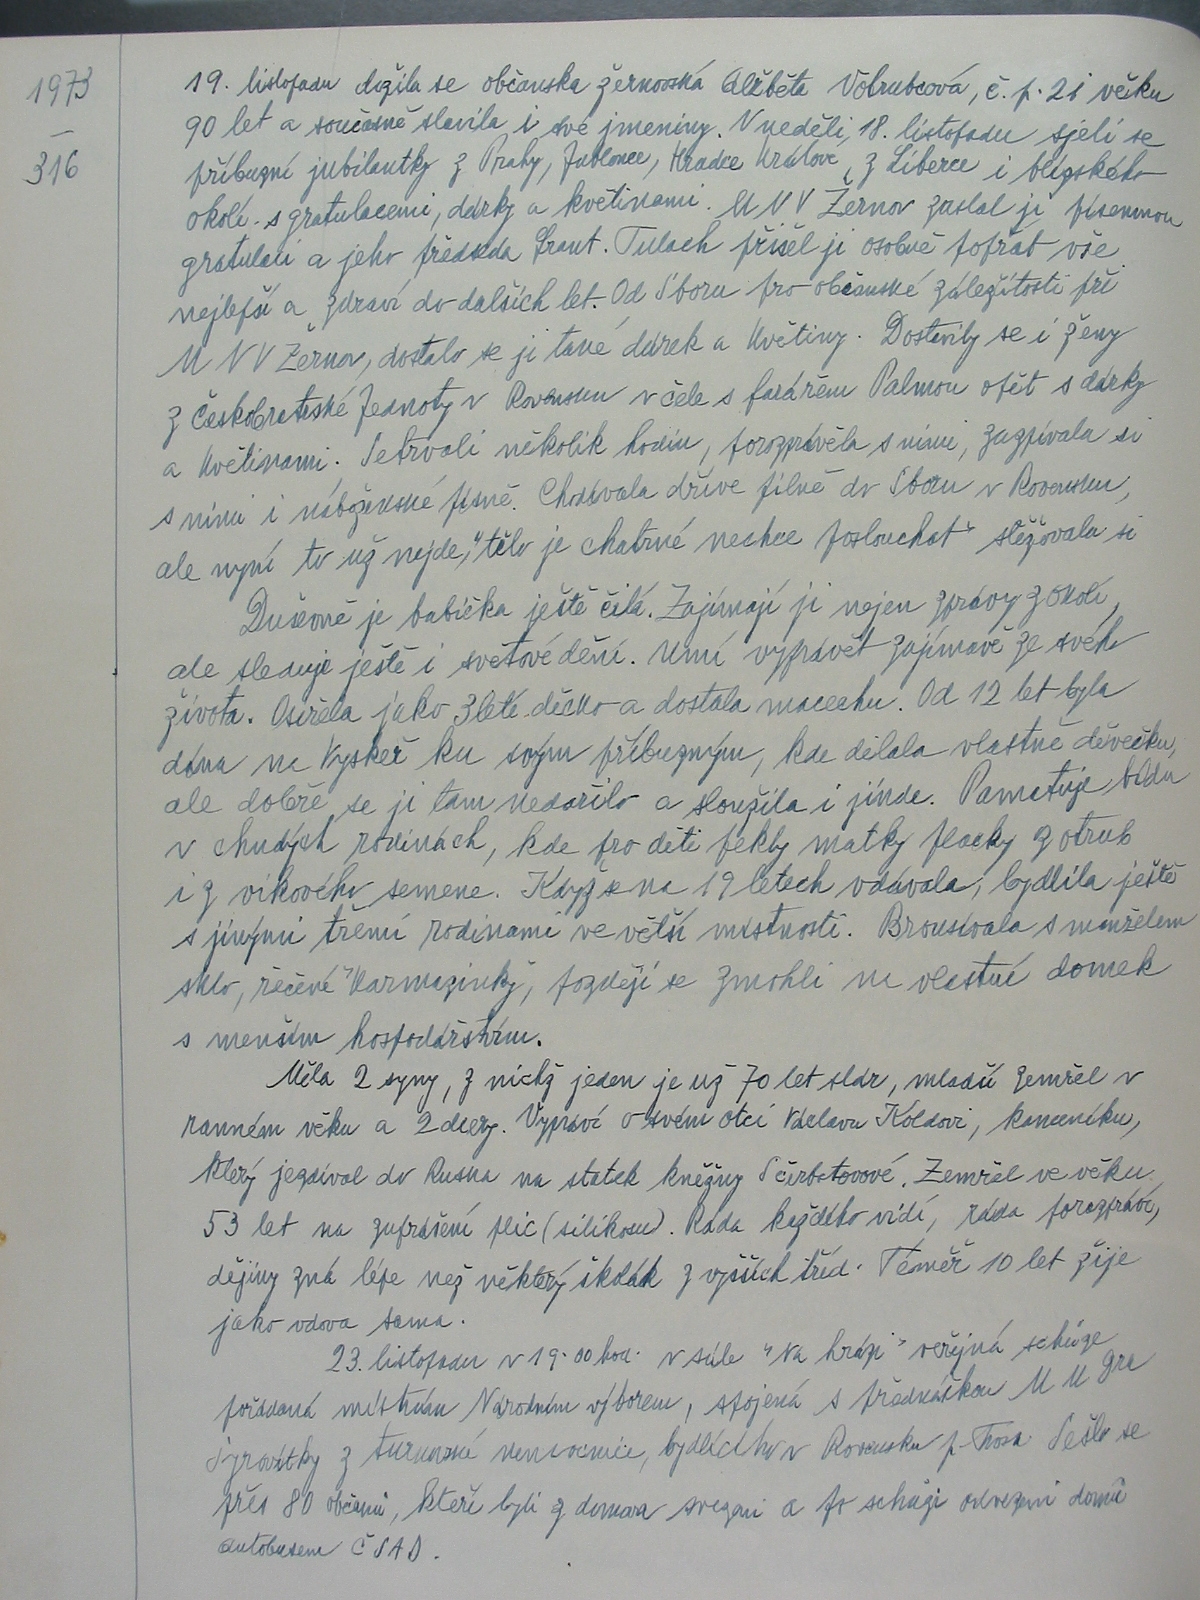 1973
—
316
19. listopadu dožila se občanska žernovská Alžběta Votrubcová, č. p. 21 věku
90 let a současně slavila i své jmeniny. V neděli, 18. listopadu sjeli se
příbuzní jubilantky z Prahy, Jablonce, Hradce Králové, z Liberce i blízského
okolí s gratulacemi, dárky a květinami. M N V Žernov zaslal jí písemnou
gratulaci a jeho předseda Frant. Tulach přišel jí osobně popřát vše
nejlepší a zdraví do dalších let. Od Sboru pro občanské záležitosti při
M N V Žernov, dostalo se jí také dárek a květiny. Dostavily se i ženy
z Českobratrské Jednoty v Rovensku v čele s farářem Palmou opět s dárky
a květinami. Setrvali několik hodin, porozprávěla s nimi, zazpívala si
s nimi i náboženské písně. Chodívala dříve pilně do Sboru v Rovensku,
ale nyní to už nejde, "tělo je chatrné nechce poslouchat" stěžovala si
Duševně je babička ještě čilá. Zajímají ji nejen zprávy z okolí,
ale sleduje ještě i světové dění. Umí vyprávět zajímavě ze svého
života. Osiřela jako 3leté děcko a dostala macechu. Od 12 let byla
dána na Vyskeř ku svým příbuzným, kde dělala vlastně děvečku,
ale dobře se jí tam nedařilo a sloužila i jinde. Pamatuje bídu
v chudých rodinách, kde pro děti pekly matky placky z otrub
i z vikového semene. Když se na 19 letech vdávala, bydlila ještě
s jinými třemi rodinami ve větší místnosti. Brousívala s manželem
sklo, řečené "Karmazinky, později se zmohli na vlastní domek
s menším hospodářstvím.
Měla 2 syny, z nichž jeden je už 70 let stár, mladší zemřel v
ranném věku a 2 dcery. Vypráví o svém otci Václavu Koldovi, kameníku,
který jezdíval do Ruska na statek kněžny Ščerbatovové. Zemřel ve věku
53 let na zaprášení plic (silikosu). Ráda každého vidí, ráda porozpráví,
dějiny zná lépe než některý školák z vyšších tříd. Téměř 10 let žije
jako vdova sama.
23. listopadu v 19.00 hod. v sále "Na hrázi" veřejná schůze
pořádaná místním Národním výborem, spojená s přednáškou M U Dra
Syrovátky z turnovské nemocnice, bydlícího v Rovensku p. Tros. Sešlo se
přes 80 občanů, kteří byli z domova svezeni a po schůzi odvezeni domů
autobusem Č S A D.